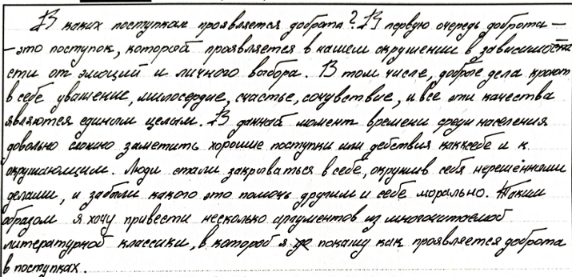 В каких поступкам проявляется доброта? В первую очередь доброта —
— это поступок, которой проявляется в нашем окружении в зависимости
сти от эмоций и личного выбора. В том числе, доброе дела кроют
в себе уважение, милосердие, счастье, сочувствие, и все эти качества
являются единым целым. В данный момент времени среди населения
довольно сложно заметить хорошие поступки или действия как к себе и к
окружающим. Люди стали закрываться в себе, окружив себя нерешёнными
делами, и забыли какого это помочь другим и себе морально. Таким
образом я хочу привести несколько аргументов из многочитаемой
литературной классики, в которой я уже покажу как проявляется доброта
в поступках.